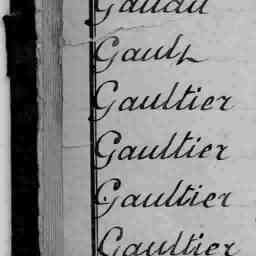 Gault
Gaultier
Gaultier
Gaultier
Gaultier